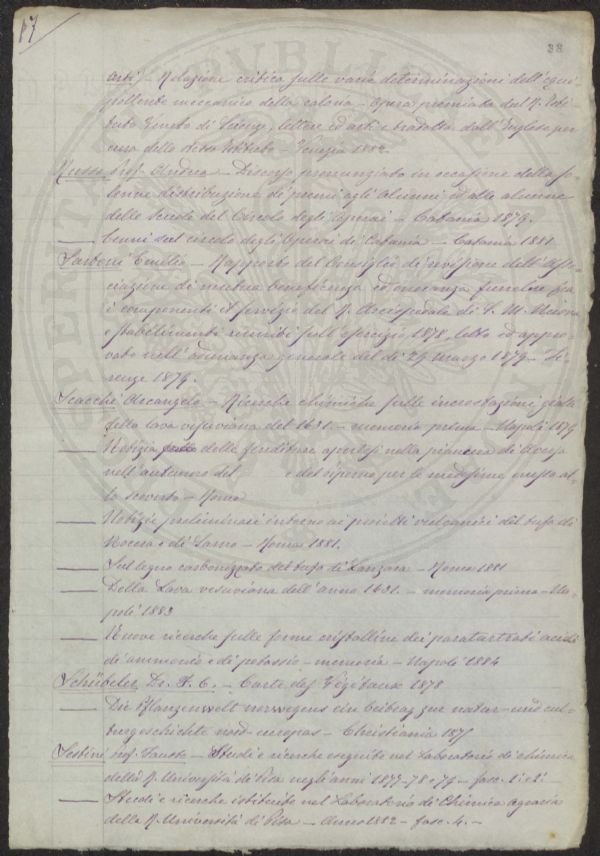 87
38
arti) — Relazione critica sulle varie determinazioni dell'equi
pollente meccanico della caloria — Opera premiata dal R. Isti
tuto Veneto di Scienze, lettere ed arti e tradotta dall'Inglese per
cura dello detto Istituto — Venezia 1882.
Russo Prof. Andrea — Discorso pronunziato in occasione della so
lenne distribuzione di premi agli alunni ed alle alunne
delle Scuole del Circolo degli Operai — Catania 1879.
— Cenni sul circolo degli Operai di Catania — Catania 1881.
Santoni Emilio — Rapporto del Consiglio di revisione dell'Asso
ciazione di mutua beneficenza ed onoranza funebre fra
i componenti il servizio del R. Arcispedale di S. M. Nuova
e stabilimenti riuniti sull'esercizio 1878, letto ed appro
vato nell'adunanza generale del dì 24 Marzo 1879 — Fi
renze 1879.
Scacchi Arcangelo — Ricerche chimiche sulle incrostazioni gialle
della lava vesuviana del 1631. — memoria prima — Napoli 1879
— Notizia delle fenditure apertesi nella pianura di Aversa
nell'autunno del e del ripieno per le medesime
to scoverto — Roma
— Notizie preliminari intorno ai proietti vulcanici del tufo di
Nocera e di Sarno — Roma 1881.
— Sul legno carbonizzato del tufo di Lanzara — Roma 1881
— Della Lava vesuviana dell'anno 1631. — memoria prima — Na
poli 1883
— Nuove ricerche sulle forme cristalline dei paratartrati acidi
di ammonio e di potassio — memoria — Napoli 1884
Schübeler, Dr. F. C. — Carte des Végétaux 1878
— Die Pflanzenwelt norwegens ein beitrag zur natur — und cul
turgeschichte nord-europas — Christiania 187
Sestini Prof. Fausto — Studi e ricerche eseguite nel Laboratorio di chimica
della R. Università di Pisa negli anni 1877-78 e 79 — fasc. 1. e 2.
— Studi e ricerche istituite nel Laboratorio di Chimica agraria
della R. Università di Pisa — Anno 1882 — fasc. 4. —